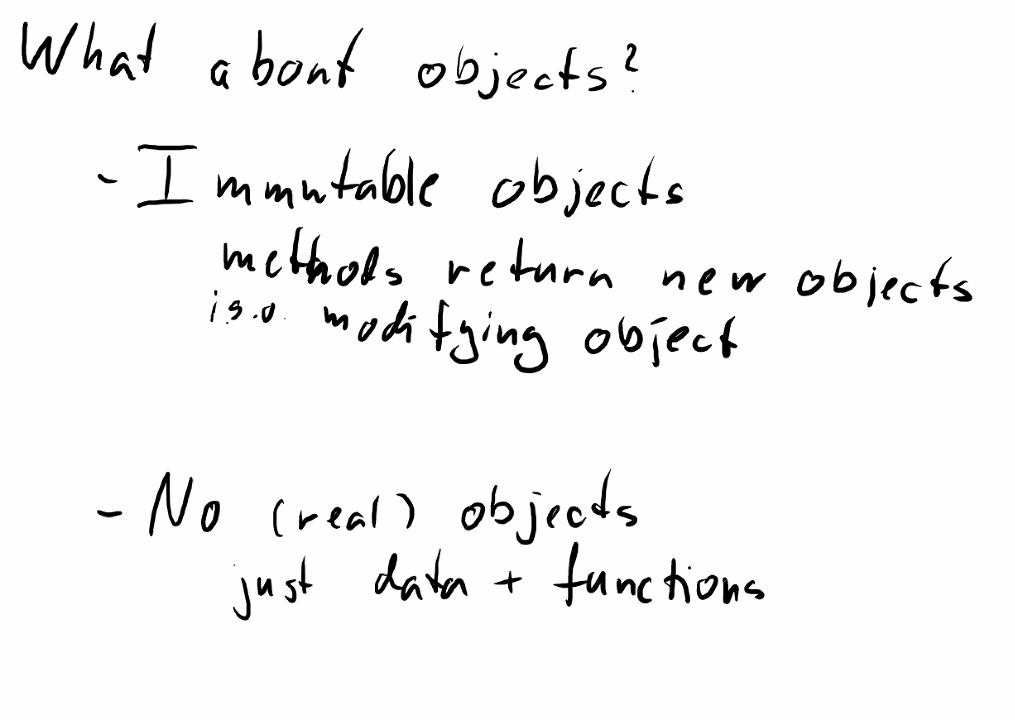 What about objects?
- Immutable objects
methods return new objects
i.s.o. modifying object
- No (real) objects
just data + functions